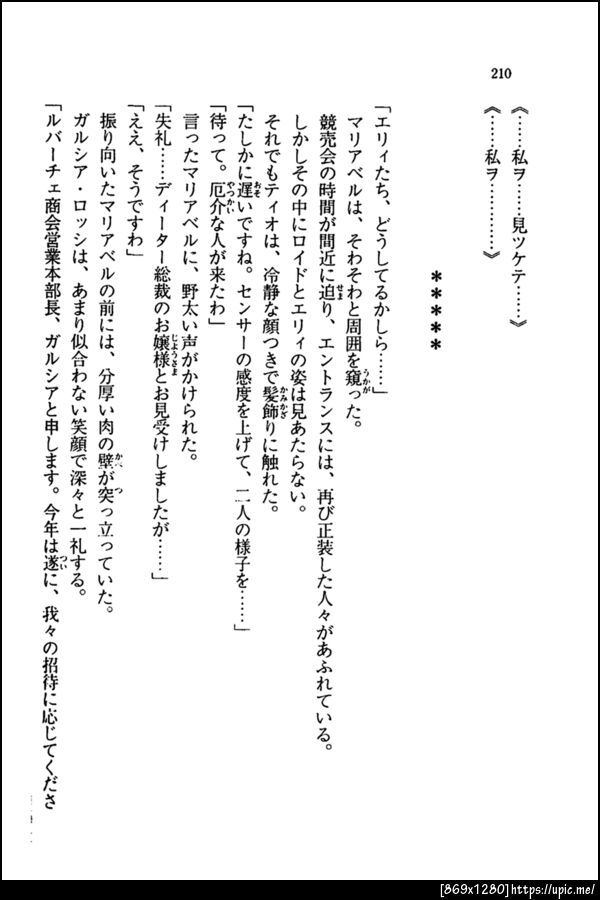 210
《……私ヲ……見ツケテ……》
《……私ヲ…………》
＊＊＊＊＊
「エリィたち、どうしてるかしら……」
マリアベルは、そわそわと周囲を窺った。
競売会の時間が間近に迫り、エントランスには、再び正装した人々があふれている。
しかしその中にロイドとエリィの姿は見あたらない。
それでもティオは、冷静な顔つきで髪飾りに触れた。
「たしかに遅いですね。センサーの感度を上げて、二人の様子を……」
「待って。厄介な人が来たわ」
言ったマリアベルに、野太い声がかけられた。
「失礼……ディーター総裁のお嬢様とお見受けしましたが……」
「ええ、そうですわ」
振り向いたマリアベルの前には、分厚い肉の壁が突っ立っていた。
ガルシア・ロッシは、あまり似合わない笑顔で深々と一礼する。
「ルバーチェ商会営業本部長、ガルシアと申します。今年は遂に、我々の招待に応じてくださ
[869x1280]https://upic.me/